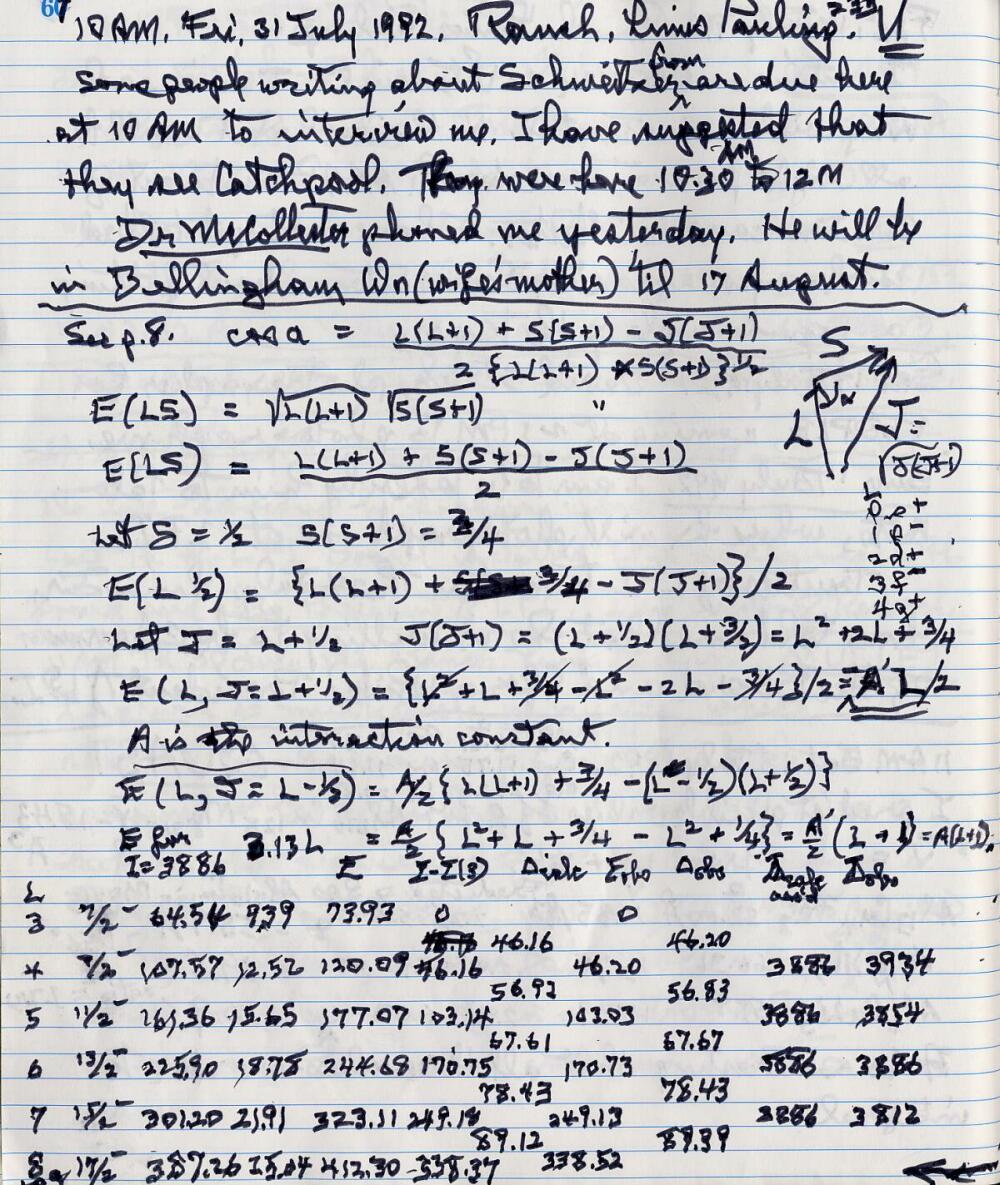 60
10 AM, Fri, 31 July 1992. Ranch, Linus Pauling.
Some people writing about Schweitzer from are due here
at 10 AM to interview me. I have suggested that
they see Catchpool. They were here 10.30 AM to 12 M
Dr McCollester phoned me yesterday. He will be
in Bellingham Wn (wife's mother) 'til 17 August.
See p. 8. cos α = L(L+1) + S(S+1) − J(J+1) / 2 {L(L+1) × S(S+1)}^1/2
S
E(LS) = √L(L+1) √S(S+1) "
L α J = √J(J+1)
E(LS) = L(L+1) + S(S+1) − J(J+1) / 2
L
0 s +
1 p −
2 d +
3 f −
4 g +
Let S = 1/2 S(S+1) = 3/4
E(L 1/2) = {L(L+1) + 3/4 − J(J+1)}/2
Let J = L + 1/2 J(J+1) = (L + 1/2)(L + 3/2) = L² + 2L + 3/4
E (L, J = L + 1/2) = {L² + L + 3/4 − L² − 2L − 3/4}/2 = A L/2
A is the interaction constant.
E (L, J = L − 1/2) = A/2 {L(L+1) + 3/4 − (L − 1/2)(L + 1/2)}
E from 3.13 L = A/2 {L² + L + 3/4 − L² + 1/4} = A/2 (L + 1) = A(L+1)
I = 3886 E Σ−Σ(3) Δcalc Eobs Δobs Icalc Iobs
L
3 7/2 − 64.54 9.39 73.93 0 0
46.16 46.20
4 9/2 − 107.57 12.52 120.09 46.16 46.20 3886 3934
56.92 56.83
5 11/2 − 161.36 15.65 177.07 103.14 103.03 3886 3854
67.61 67.67
6 13/2 − 225.90 18.78 244.68 170.75 170.73 3886 3886
78.43 78.43
7 15/2 − 301.20 21.91 323.11 249.18 249.13 3886 3812
89.12 89.39
8 17/2 − 387.26 25.04 412.30 338.37 338.52